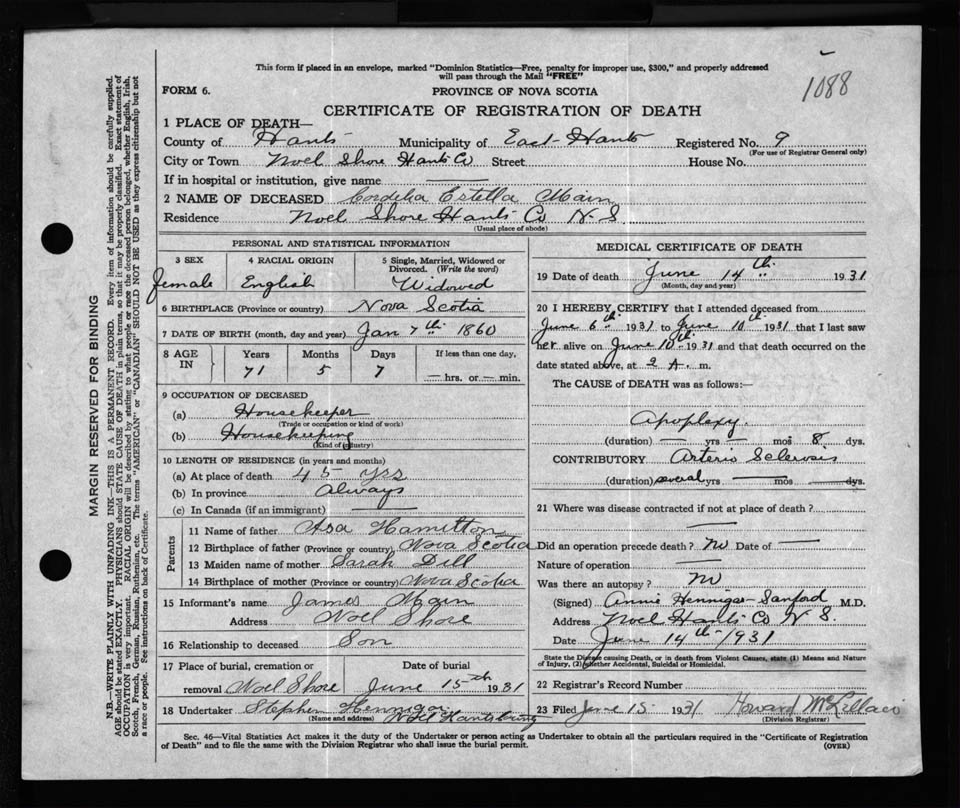 1088
This form if placed in an envelope, marked "Dominion Statistics—Free, penalty for improper use, $300," and properly addressed
will pass through the Mail "FREE"
FORM 6.
PROVINCE OF NOVA SCOTIA
CERTIFICATE OF REGISTRATION OF DEATH
1 PLACE OF DEATH—
County of Hants Municipality of East Hants Registered No. 9
(For use of Registrar General only)
City or Town Noel Shore Hants Co Street House No.
If in hospital or institution, give name —
2 NAME OF DECEASED Cordelia Estella Main
Residence Noel Shore Hants Co N.S
(Usual place of abode)
PERSONAL AND STATISTICAL INFORMATION
3 SEX
Female
4 RACIAL ORIGIN
English
5 Single, Married, Widowed or
Divorced. (Write the word)
Widowed
6 BIRTHPLACE (Province or country) Nova Scotia
7 DATE OF BIRTH (month, day and year) Jan 7th 1860
8 AGE IN
Years Months Days If less than one day,
71 5 7 — hrs. or — min.
9 OCCUPATION OF DECEASED
(a) Housekeeper
(Trade or occupation or kind of work)
(b) Housekeeping
(Kind of industry)
10 LENGTH OF RESIDENCE (in years and months)
(a) At place of death 45 yrs
(b) In province Always
(c) In Canada (if an immigrant) —
Parents
11 Name of father Asa Hamilton
12 Birthplace of father (Province or country) Nova Scotia
13 Maiden name of mother Sarah Dill
14 Birthplace of mother (Province or country) Nova Scotia
15 Informant's name James Main
Address Noel Shore
16 Relationship to deceased Son
17 Place of burial, cremation or Date of burial
removal Noel Shore June 15th 1931
18 Undertaker Stephen Hennigar
(Name and address) Noel Hants
MEDICAL CERTIFICATE OF DEATH
19 Date of death June 14th 1931
(Month, day and year)
20 I HEREBY CERTIFY that I attended deceased from
June 6th 1931 to June 10th 1931 that I last saw
her alive on June 10th 1931 and that death occurred on the
date stated above, at 2 A. m.
The CAUSE OF DEATH was as follows:—
Apoplexy.
(duration) — yrs — mos 8 dys.
CONTRIBUTORY Arterio Sclerosis
(duration) several yrs — mos — dys.
21 Where was disease contracted if not at place of death?
—
Did an operation precede death? No Date of —
Nature of operation —
Was there an autopsy? No
(Signed) Annie Hennigar-Sanford M.D.
Address Noel Hants Co N S.
Date June 14th 1931
State the Disease causing Death, or in death from Violent Causes, state (1) Means and Nature
of Injury, (2) whether Accidental, Suicidal or Homicidal.
22 Registrar's Record Number
23 Filed June 15 1931 Howard
(Division Registrar)
Sec. 46—Vital Statistics Act makes it the duty of the Undertaker or person acting as Undertaker to obtain all the particulars required in the "Certificate of Registration
of Death" and to file the same with the Division Registrar who shall issue the burial permit.
(OVER)
MARGIN RESERVED FOR BINDING
N.B.—WRITE PLAINLY WITH UNFADING INK—THIS IS A PERMANENT RECORD. Every item of information should be carefully supplied.
AGE should be stated EXACTLY. PHYSICIANS should STATE CAUSE OF DEATH in plain terms, so that it may be properly classified. Exact statement of
OCCUPATION is very important. RACIAL ORIGIN will be described by stating to what people or race the deceased person belonged, whether English, Irish,
Scotch, French, German, Russian, Ruthenian, etc. The terms "AMERICAN" or "CANADIAN" SHOULD NOT BE USED as they express citizenship but not
a race or people. See instructions on back of Certificate.